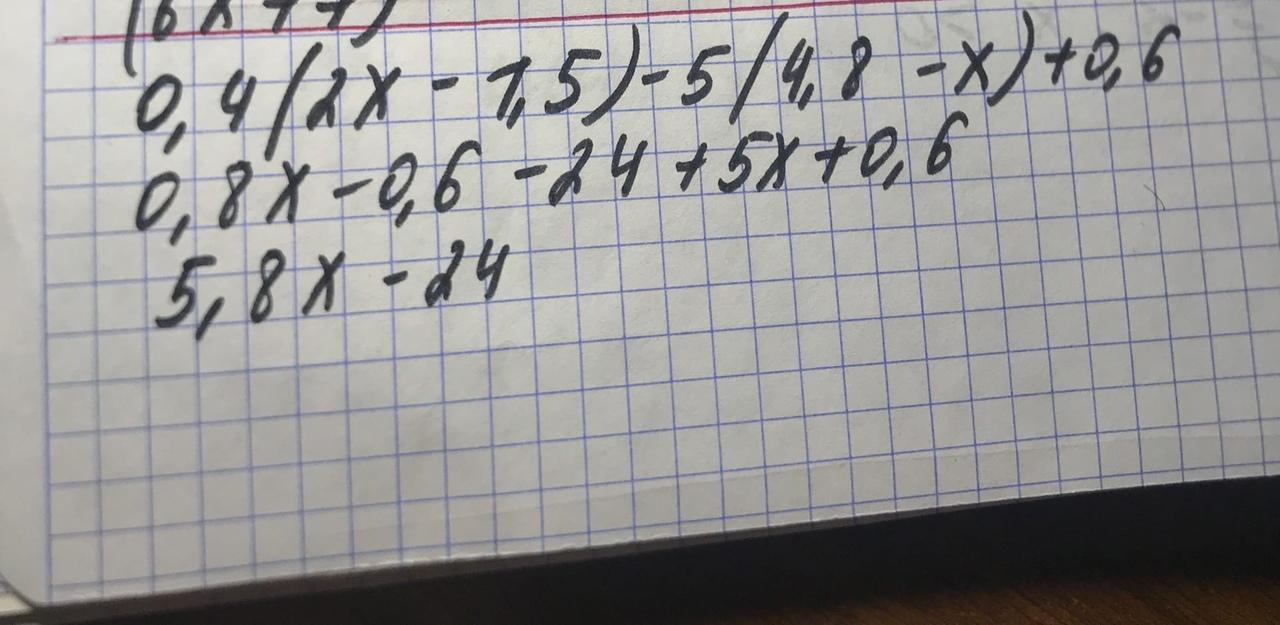 0,4(2x - 1,5) - 5(4,8 - x) + 0,6
0,8x - 0,6 - 24 + 5x + 0,6
5,8x - 24